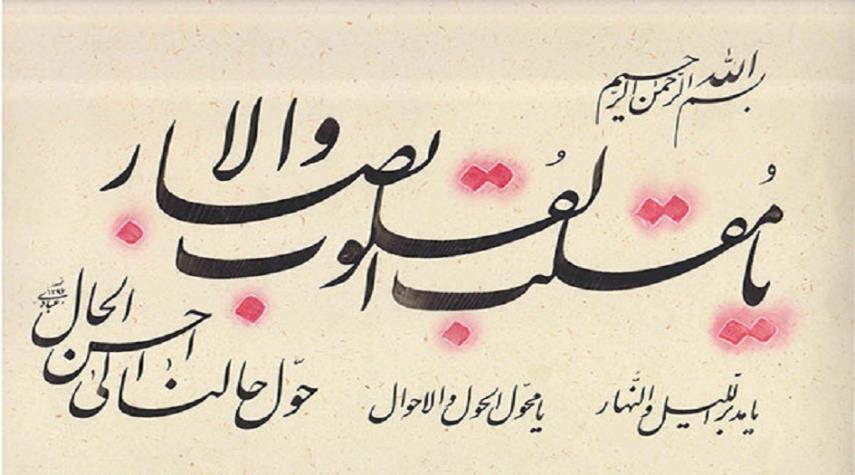 بسم الله الرحمن الرحیم
یا مُقلب القُلوب والابصار
یا مدبر اللیل و النّهار
یا محوّل الحول و الاحوال
حوّل حالنا الی احسن الحال